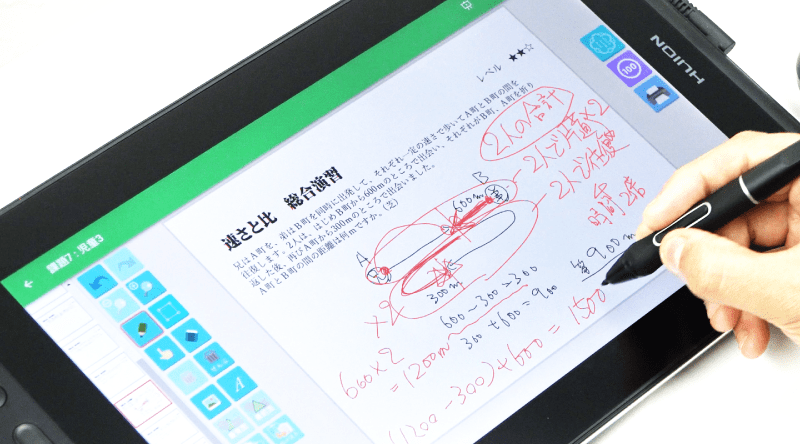 HUION
課題7:児童3
100
レベル ★★☆
速さと比 総合演習
兄はA町を、弟はB町を同時に出発して、それぞれ一定の速さで歩いてA町とB町の間を
往復します。2人は、はじめB町から600mのところで出会い、それぞれがB町、A町を折り
返した後、再びA町から300mのところで出会いました。
A町とB町の間の距離は何mですか。(芝)
2人の合計
2人で片道×2
2人で往復
時間
B
600m
A
300m
×2
600-300=300
300+600=900
答 900m
600×2
=1200m
(1200-300)+600=1500
A